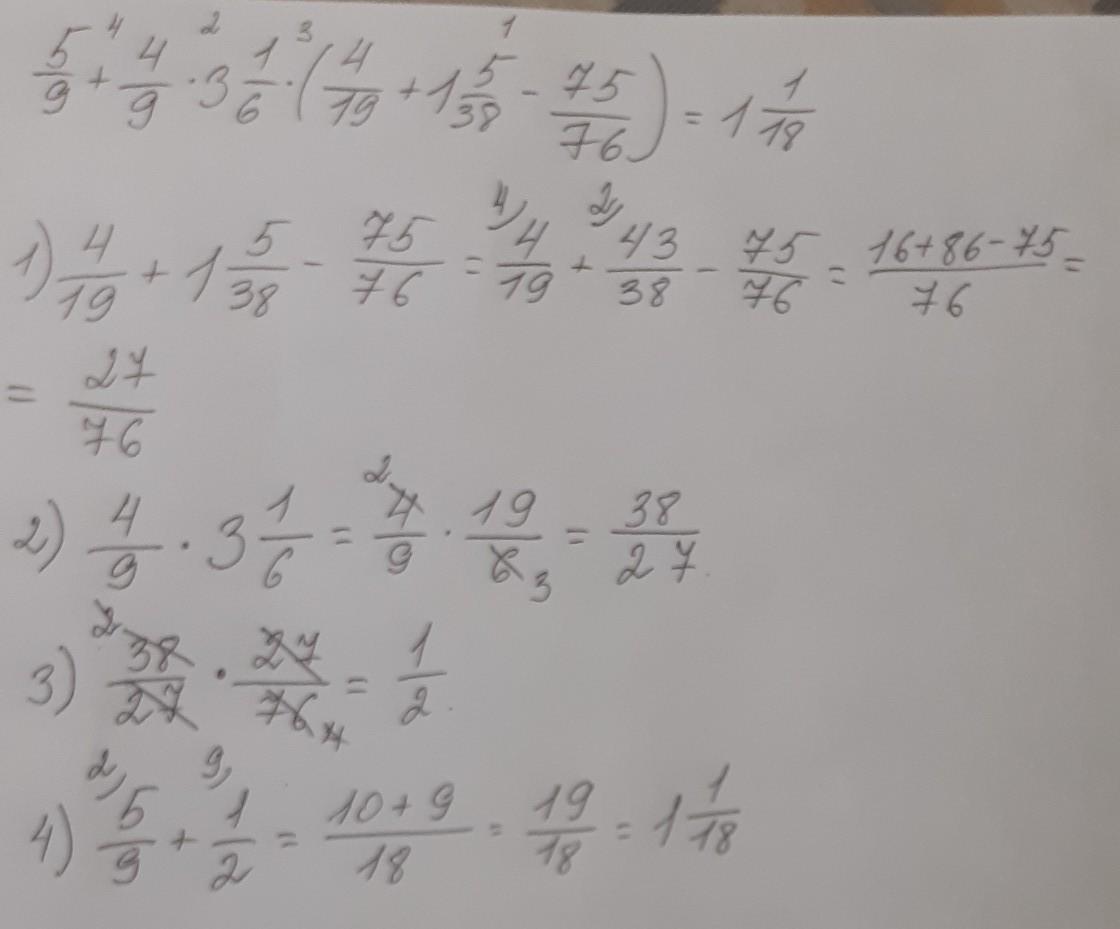 5/9 +⁴ 4/9 ·² 3 1/6 ·³ (4/19 +¹ 1 5/38 - 75/76) = 1 1/18
1) 4/19 + 1 5/38 - 75/76 = ⁴⁾4/19 + ²⁾43/38 - 75/76 = (16+86-75)/76 =
= 27/76
2) 4/9 · 3 1/6 = ²4/9 · 19/6₃ = 38/27.
3) ²38/27 · 27/76₄ = 1/2.
4) ²⁾5/9 + ⁹⁾1/2 = (10+9)/18 = 19/18 = 1 1/18